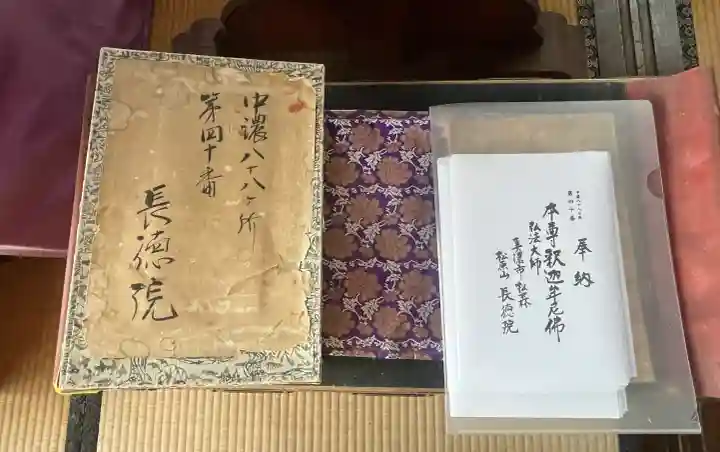 中濃八十八ヶ所
第四十番
長徳院
奉納
中濃八十八ヶ所
第四十番
本尊釈迦牟尼佛
弘法大師
美濃市牧森
松泉山長徳院